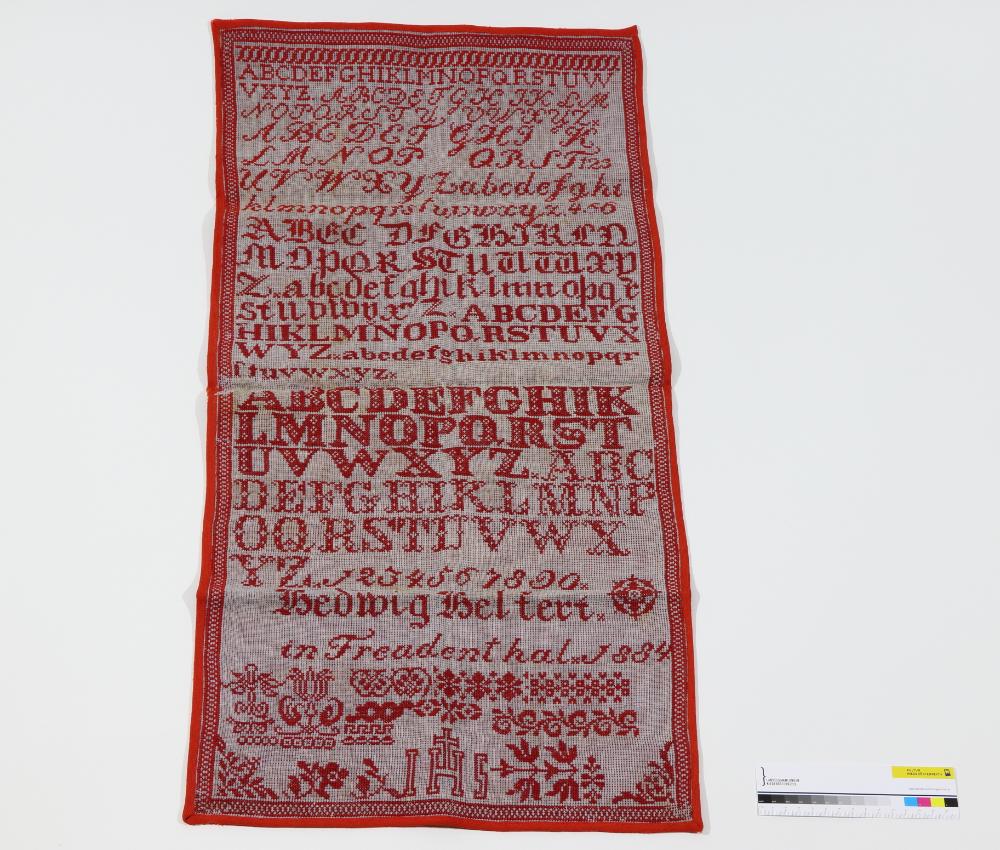 ABCDEFGHIKLMNOPQRSTUW
VXYZ. ABCDEFGHIKLM
NOPQRSTUVWXYZ
ABCDEF GHI K
LMNOP QRST123
UVWXYZabcdefghi
klmnopqrstuvwxyz.456
ABCC DFGHIKLN
MOPQRSTUUWXY
Z.abcdefghiklmnopqr
stuvwyxZ.ABCDEFG
HIKLMNOPQRSTUVX
WYZ.abcdefghiklmnopqr
ſtuvwxyz.
ABCDEFGHIK
LMNOPQRST
UVWXYZ.ABC
DEFGHIKLMNP
OQRSTUVWX
YZ.1234567890.
Hedwig Helfert.
in Freudenthal.1884
IHS